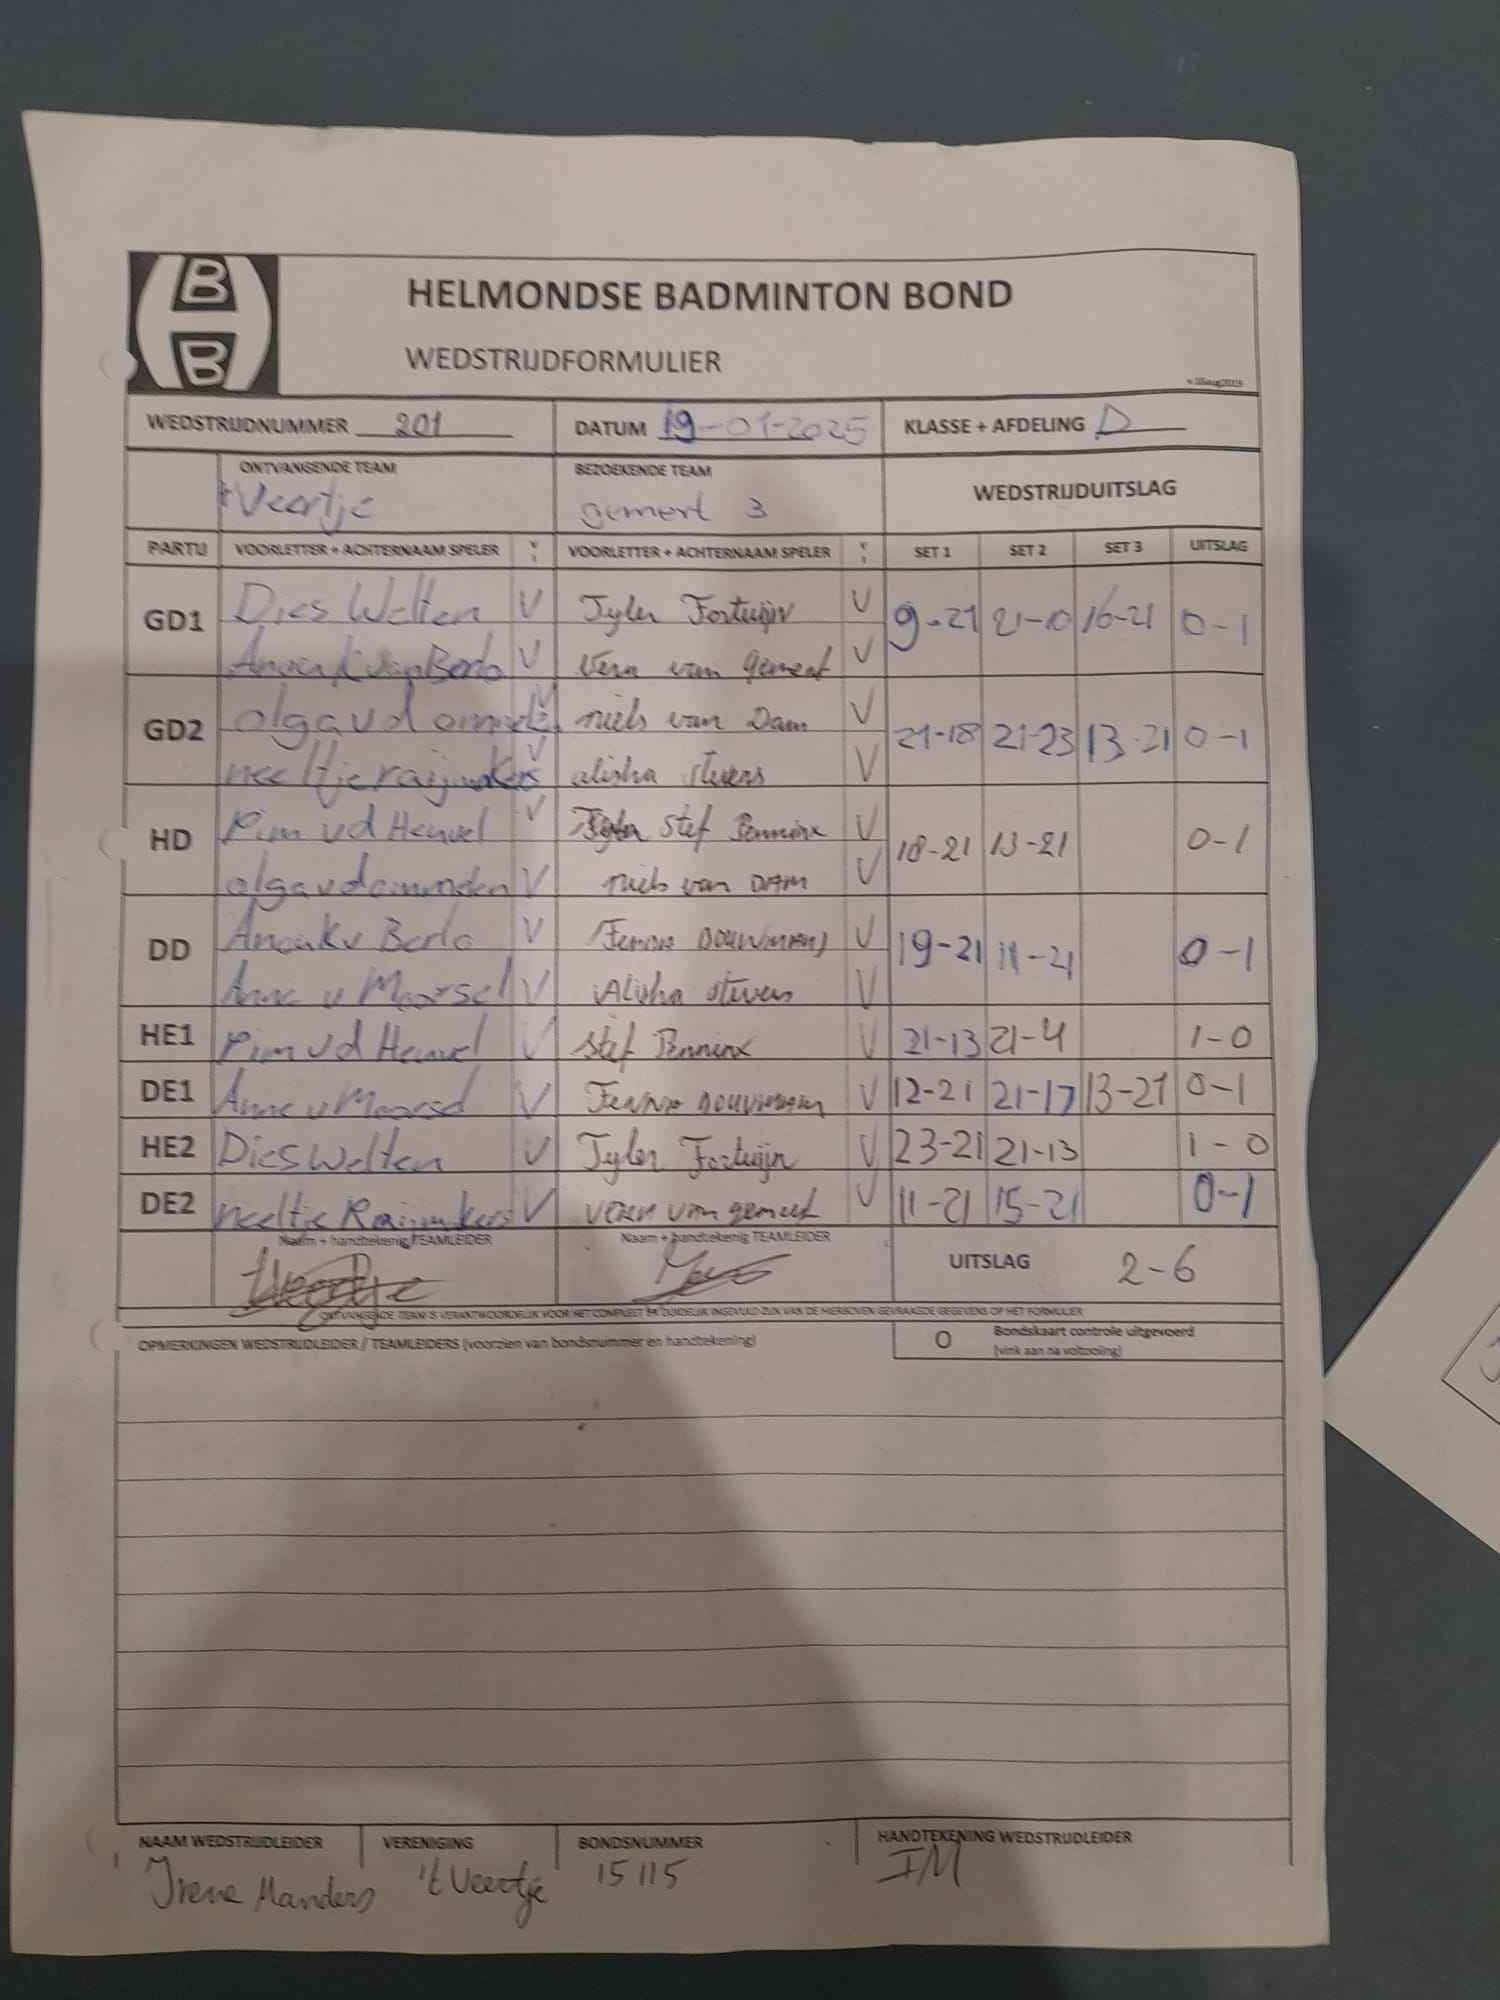 B
B
HELMONDSE BADMINTON BOND
WEDSTRIJDFORMULIER
WEDSTRIJDNUMMER 201 DATUM 19-01-2025 KLASSE + AFDELING D
ONTVANGENDE TEAM BEZOEKENDE TEAM WEDSTRIJDUITSLAG
't Veertje gemert 3
PARTIJ VOORLETTER + ACHTERNAAM SPELER V VOORLETTER + ACHTERNAAM SPELER V SET 1 SET 2 SET 3 UITSLAG
GD1 Dies Welten V Tyler Fortuijn V 9-21 21-10 16-21 0-1
Anouk van Berlo V Vera van gemert V
GD2 olga vd ommden V niels van Dam V 21-18 21-23 13-21 0-1
neeltje raijmakers V alisha stevens V
HD Pim vd Heuvel V Stef Penninx V 18-21 13-21 0-1
olga vd ommden V niels van DAM V
DD Anouk v Berlo V (Fenna DOUWMAN) V 19-21 11-21 0-1
Anne v Moorsel V Alisha stevens V
HE1 Pim vd Heuvel V Stef Penninx V 21-13 21-4 1-0
DE1 Anne v Moorsel V Fenna Douwmam V 12-21 21-17 13-21 0-1
HE2 Dies Welten V Tyler Fortuijn V 23-21 21-13 1-0
DE2 neeltje Raijmakers V vera van gemert V 11-21 15-21 0-1
Naam + handtekenig TEAMLEIDER Naam + handtekenig TEAMLEIDER UITSLAG 2-6
ONTVANGENDE TEAM IS VERANTWOORDELIJK VOOR HET COMPLEET EN DUIDELIJK INGEVULD ZIJN VAN DE HIERBOVEN GEVRAAGDE GEGEVENS OP HET FORMULIER
OPMERKINGEN WEDSTRIJDLEIDER / TEAMLEIDERS (voorzien van bondsnummer en handtekening) O Bondskaart controle uitgevoerd
(vink aan na voltooiing)
NAAM WEDSTRIJDLEIDER VERENIGING BONDSNUMMER HANDTEKENING WEDSTRIJDLEIDER
Irene Manders 't Veertje 15115 IM